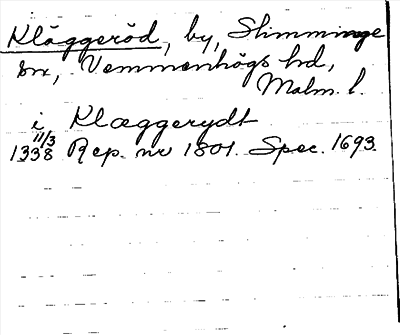 Kläggeröd, by, Slimminge
sn, Vemmenhögs hd,
Malm. l.
i Klæggerydt
11/3
1338 Rep. nr 1801. Spec. 1693.